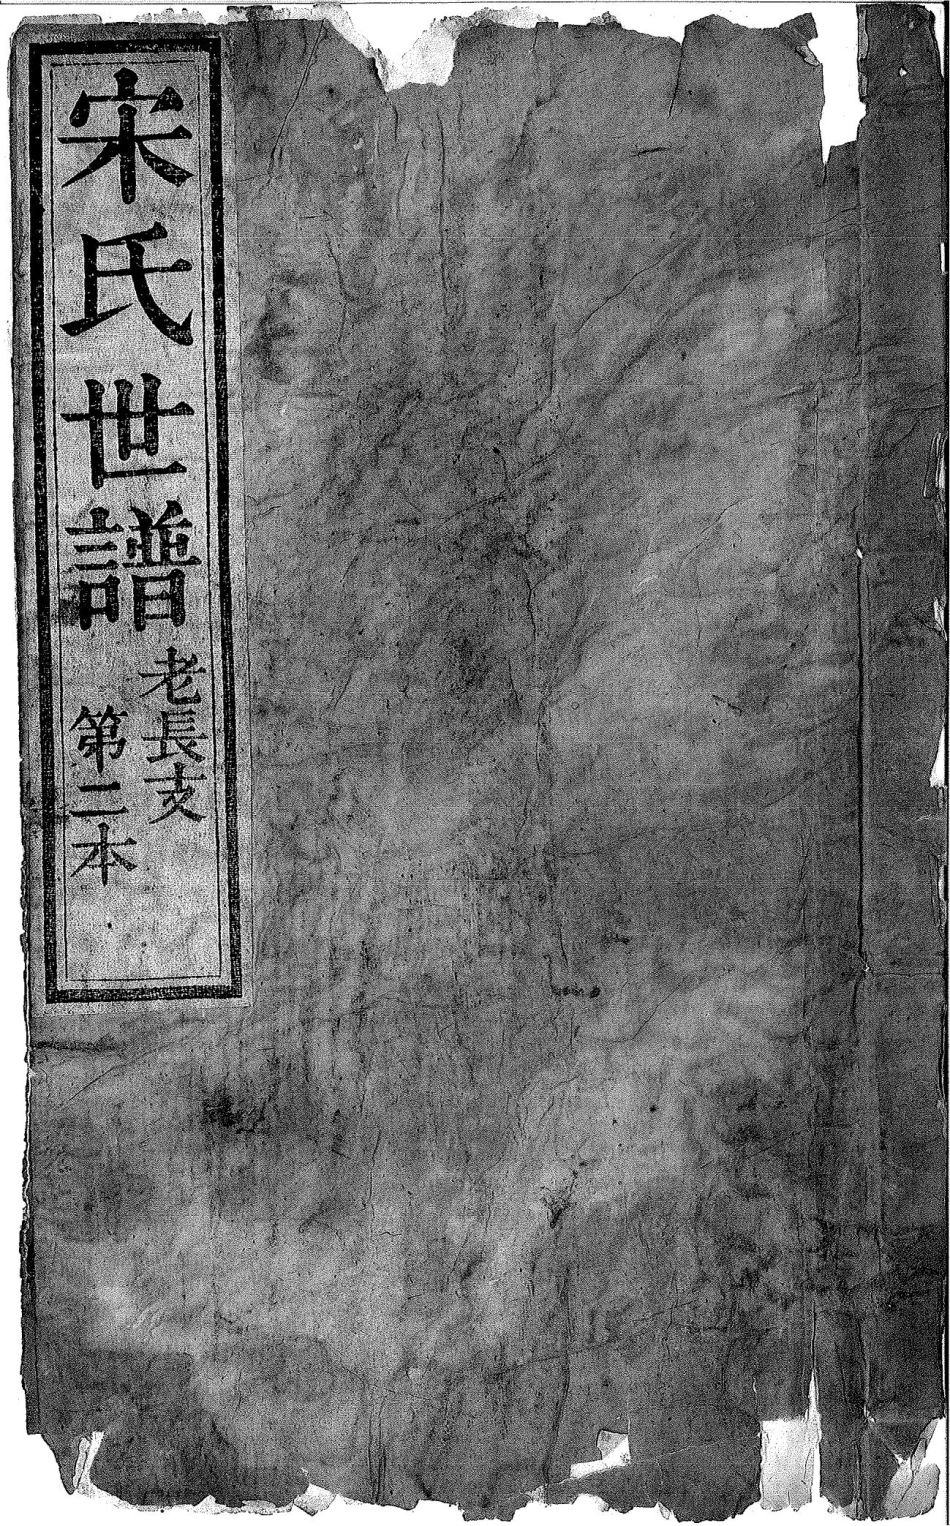 宋氏世譜
老長支
第二本